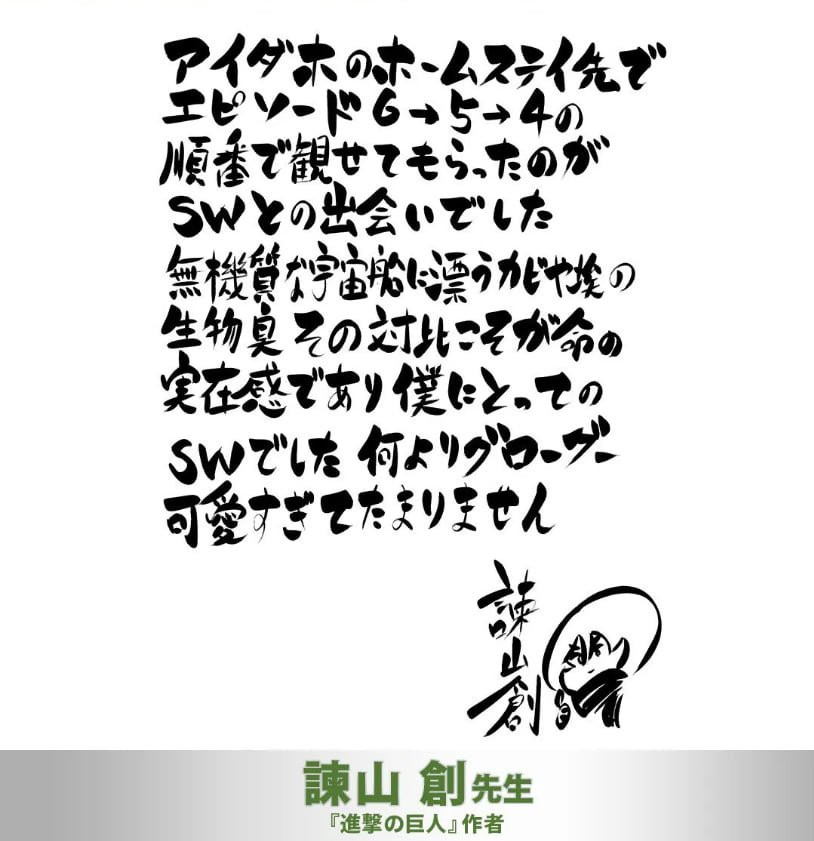 アイダホのホームステイ先で
エピソード6→5→4の
順番で観せてもらったのが
SWとの出会いでした
無機質な宇宙船に漂うカビや埃の
生物臭 その対比こそが命の
実在感であり僕にとっての
SWでした 何よりグローグー
可愛すぎてたまりません
諫山創
諫山 創先生
『進撃の巨人』作者